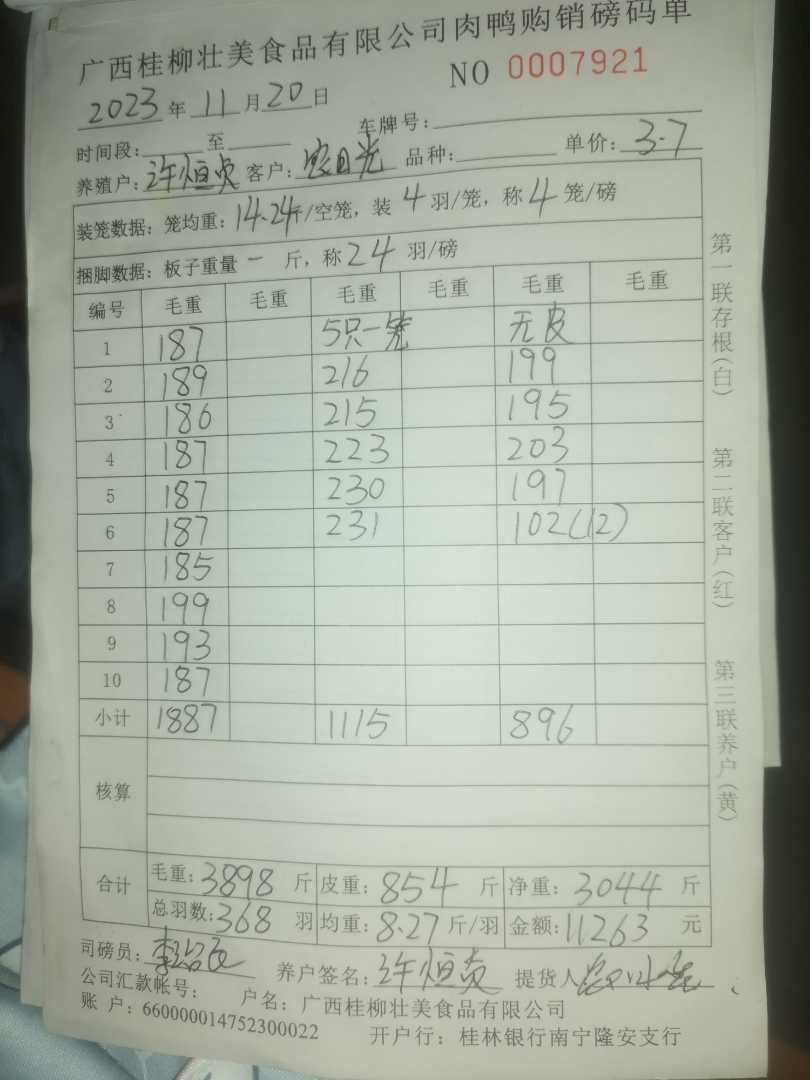 广西桂柳壮美食品有限公司肉鸭购销磅码单
NO 0007921
2023年11月20日
时间段: 至 车牌号:
养殖户: 许恒贞 客户: 品种: 单价: 3.7
装笼数据: 笼均重: 14.24斤/空笼, 装 4 羽/笼, 称 4 笼/磅
捆脚数据: 板子重量 一 斤, 称 24 羽/磅
编号 毛重 毛重 毛重 毛重 毛重 毛重
1 187 5只一笼 无皮
2 189 216 199
3 186 215 195
4 187 223 203
5 187 230 197
6 187 231 102(12)
7 185
8 199
9 193
10 187
小计 1887 1115 896
核算
合计 毛重: 3898 斤 皮重: 854 斤 净重: 3044 斤
总羽数: 368 羽 均重: 8.27 斤/羽 金额: 11263 元
司磅员: 养户签名: 许恒贞 提货人
公司汇款帐号: 户名: 广西桂柳壮美食品有限公司
账 户: 660000014752300022 开户行: 桂林银行南宁隆安支行
第一联存根(白) 第二联客户(红) 第三联养户(黄)